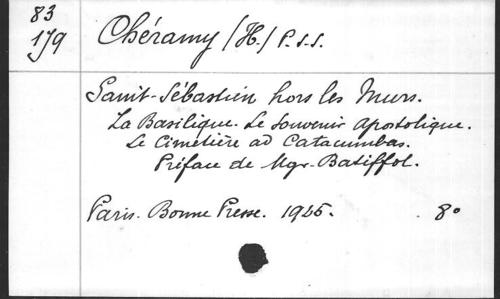 83
179
Chéramy (H.) P.S.S.
Saint-Sébastien hors les Murs.
La Basilique. Le Souvenir Apostolique.
Le Cimetière ad Catacumbas.
Préface de Mgr. Batiffol.
Paris. Bonne Presse. 1925. 8°